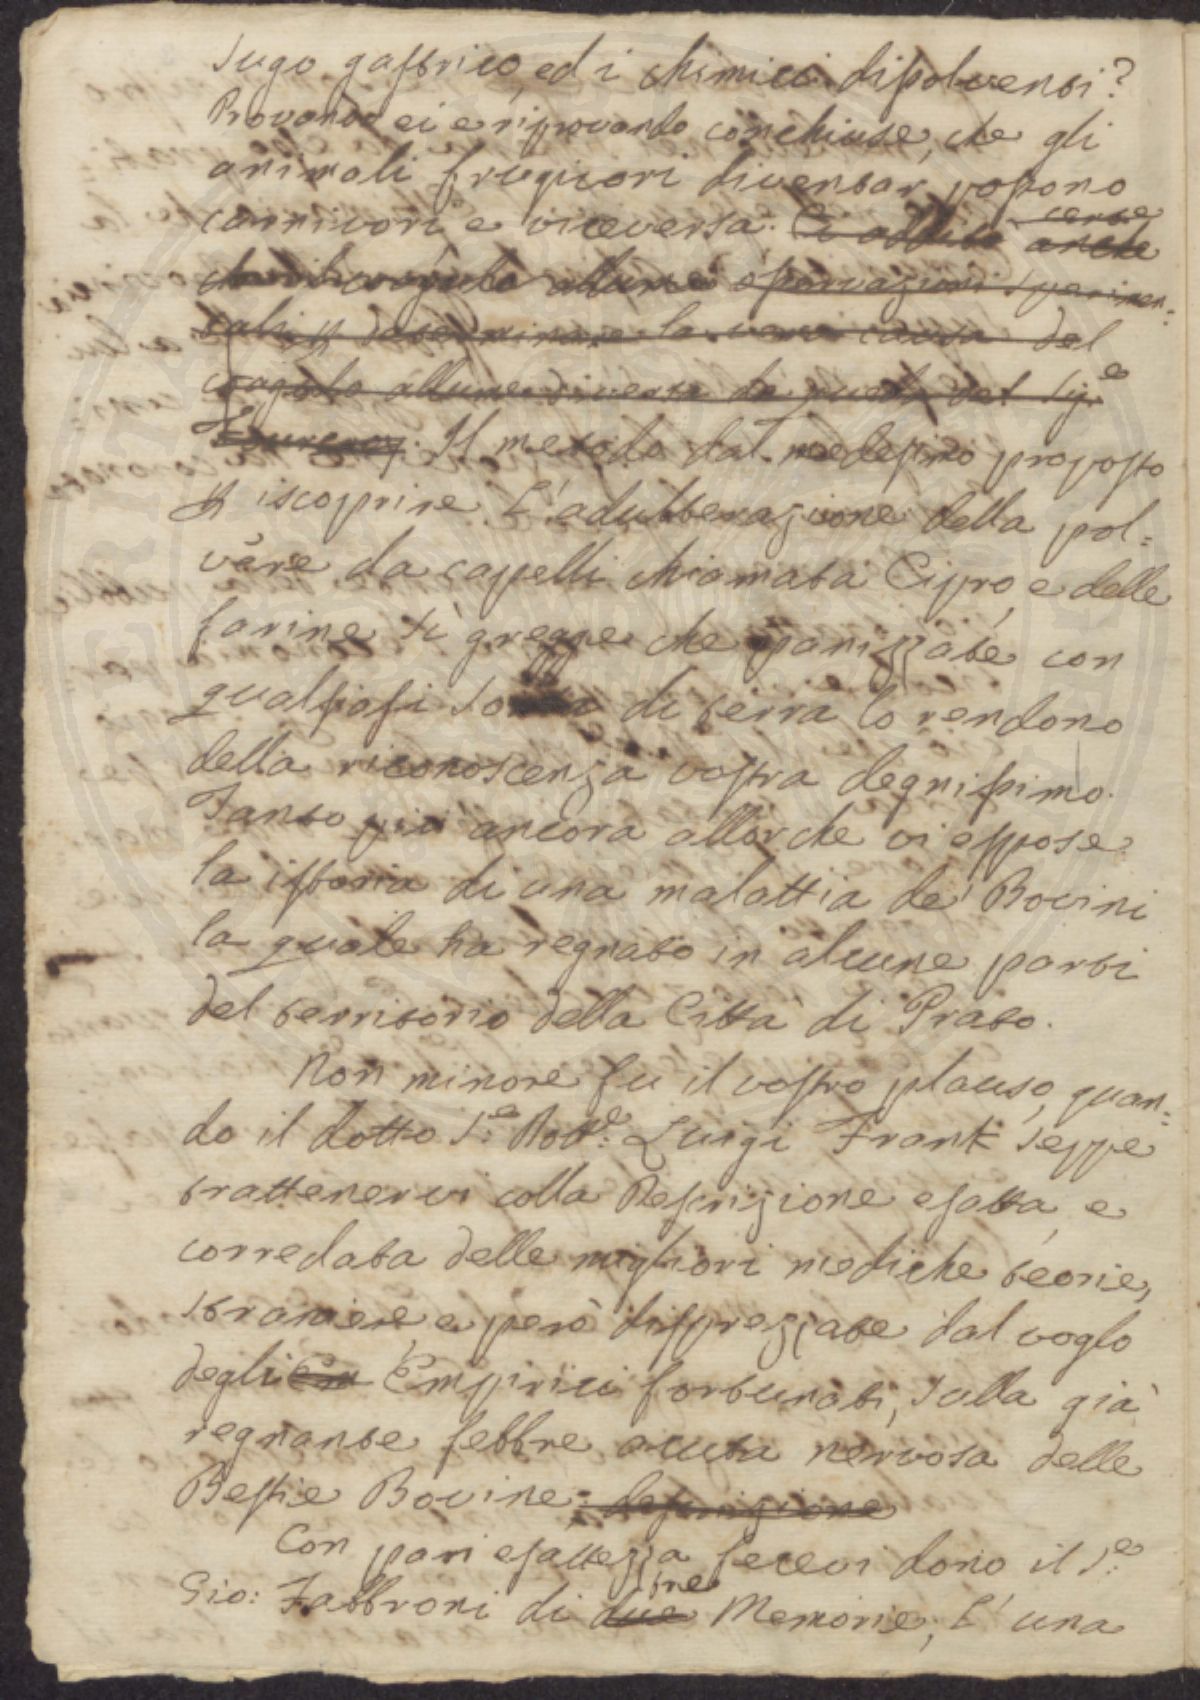 sugo gastrico, ed i chimici dissolventi?
Provando ei e riprovando conchiuse, che gli
animali frugivori diventar possono
carnivori e viceversa. Ci addita anche certe
osservazioni sperimen=
tali p determinare la vera causa del
coagulo allume diversa da quella del Sig.e
Il metodo dal medesimo proposto
p iscoprire l'adulterazione della pol=
vere da capelli chiamata Cipro, e delle
farine sì gregge che panizzate con
qualsiasi sorta di terra lo rendono
della riconoscenza vostra degnissimo.
Tanto più ancora allorche vi espose
la istoria di una malattia de' Bovini
la quale ha regnato in alcune parti
del territorio della Città di Prato.
Non minore fu il vostro plauso, quan=
do il dotto S.e Dott.e Luigi Frank seppe
trattenervi colla Descrizione esatta, e
corredata delle migliori mediche teorie,
straniere e però disprezzate dal voglo
degli Em Empirici fortunati, sulla già
regnante febbre acuta nervosa delle
Bestie Bovine. descrizione
Con pari esattezza fecevi dono il S.e
Gio: Fabbroni di due tre Memorie, l'una